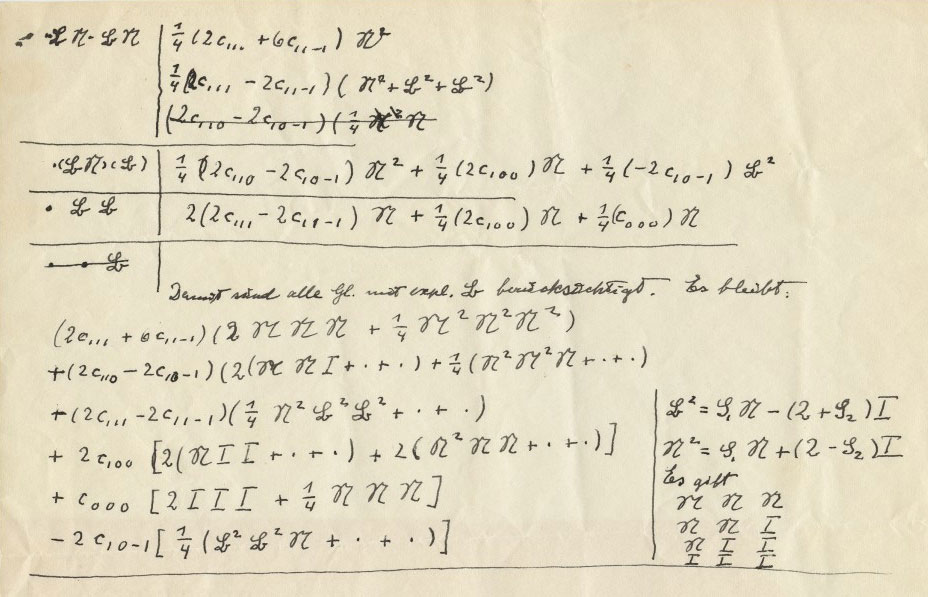 · 𝔏 𝔑 · 𝔏 𝔑 | ¼ (2c₁₁₁ + 6c₁₁₋₁) 𝔑²
¼ (2c₁₁₁ − 2c₁₁₋₁) (𝔑² + 𝔏² + 𝔏²)
(2c₁₁₀ − 2c₁₀₋₁) (¼ 𝔑
·(𝔏 𝔑) (𝔏) | ¼ (2c₁₁₀ − 2c₁₀₋₁) 𝔑² + ¼ (2c₁₀₀) 𝔑 + ¼ (−2c₁₀₋₁) 𝔏²
· 𝔏 𝔏 | 2(2c₁₁₁ − 2c₁₁₋₁) 𝔑 + ¼ (2c₁₀₀) 𝔑 + ¼ (c₀₀₀) 𝔑
· · 𝔏
Damit sind alle Gl. mit expl. 𝔏 berücksichtigt. Es bleibt:
(2c₁₁₁ + 6c₁₁₋₁) (2 𝔑 𝔑 𝔑 + ¼ 𝔑² 𝔑² 𝔑²)
+ (2c₁₁₀ − 2c₁₀₋₁) (2(𝔑 𝔑 I + · + ·) + ¼ (𝔑² 𝔑² 𝔑 + · + ·)
+ (2c₁₁₁ − 2c₁₁₋₁) (¼ 𝔑² 𝔏² 𝔏² + · + ·)
+ 2c₁₀₀ [2(𝔑 I I + · + ·) + 2(𝔑² 𝔑 𝔑 + · + ·)]
+ c₀₀₀ [2 I I I + ¼ 𝔑 𝔑 𝔑]
− 2c₁₀₋₁ [¼ (𝔏² 𝔏² 𝔑 + · + ·)]
𝔏² = S₁ 𝔑 − (2 + S₂) I
𝔑² = S₁ 𝔑 + (2 − S₂) I
Es gibt
𝔑 𝔑 𝔑
𝔑 𝔑 I
𝔑 I I
I I I